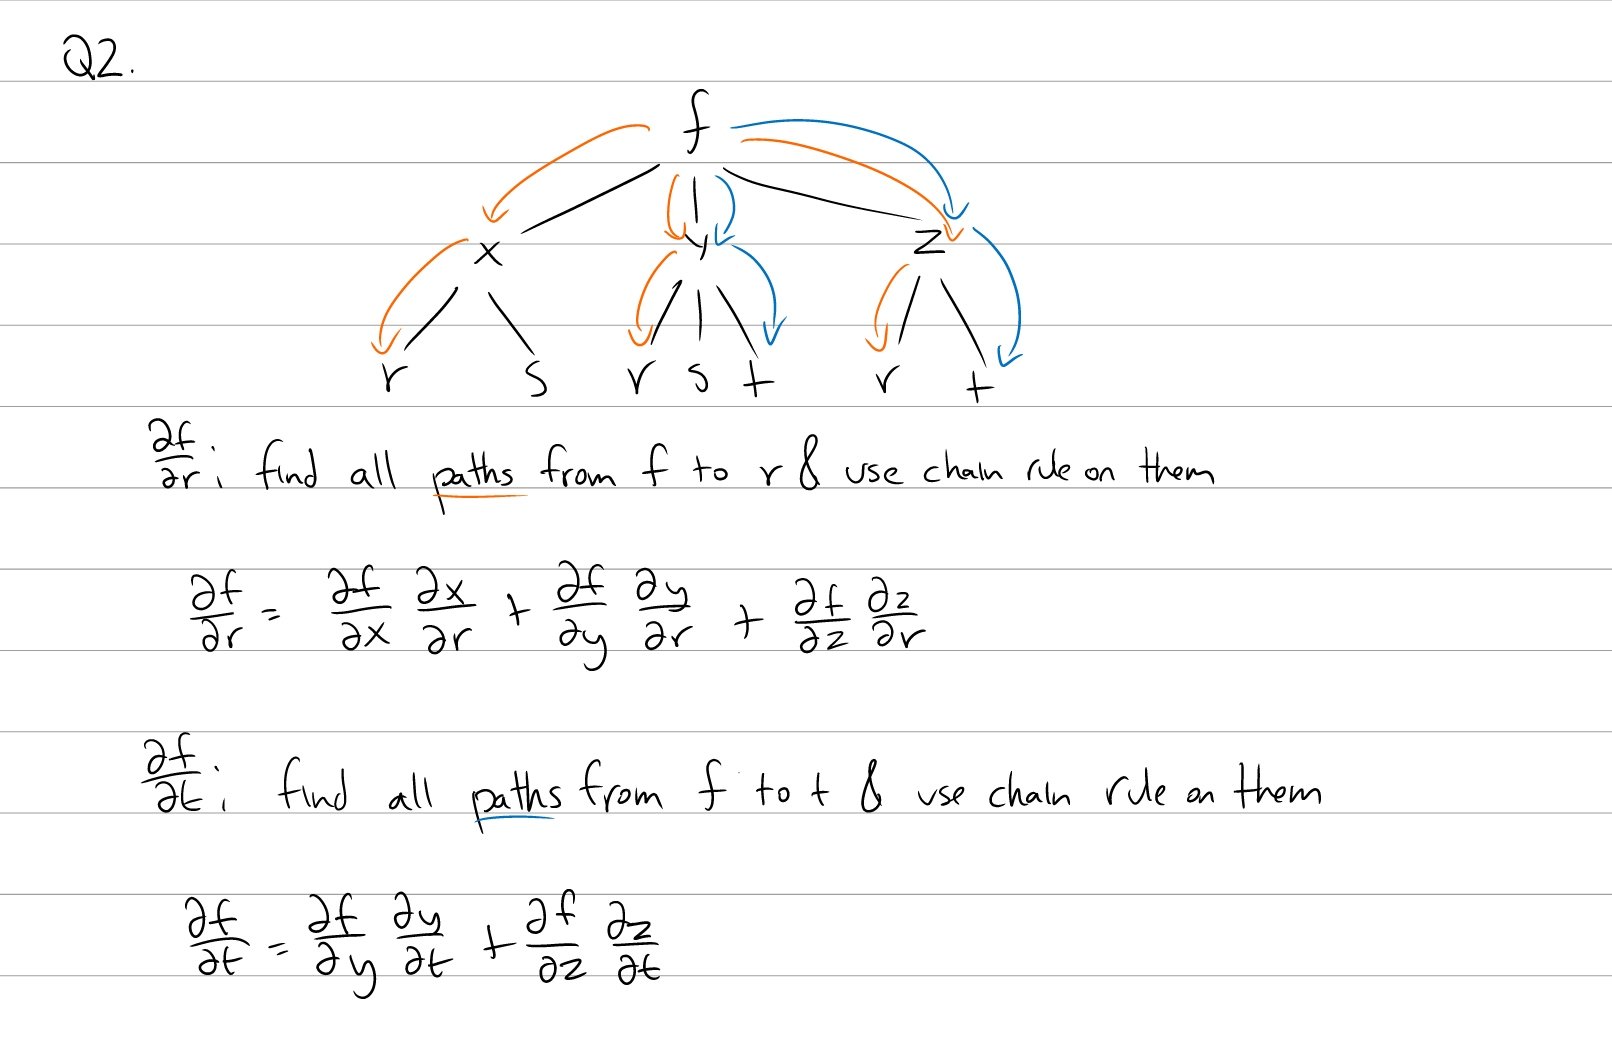 Q2.
f
x y z
r s r s t r t
∂f/∂r: find all paths from f to r & use chain rule on them
∂f/∂r = ∂f/∂x ∂x/∂r + ∂f/∂y ∂y/∂r + ∂f/∂z ∂z/∂r
∂f/∂t: find all paths from f to t & use chain rule on them
∂f/∂t = ∂f/∂y ∂y/∂t + ∂f/∂z ∂z/∂t